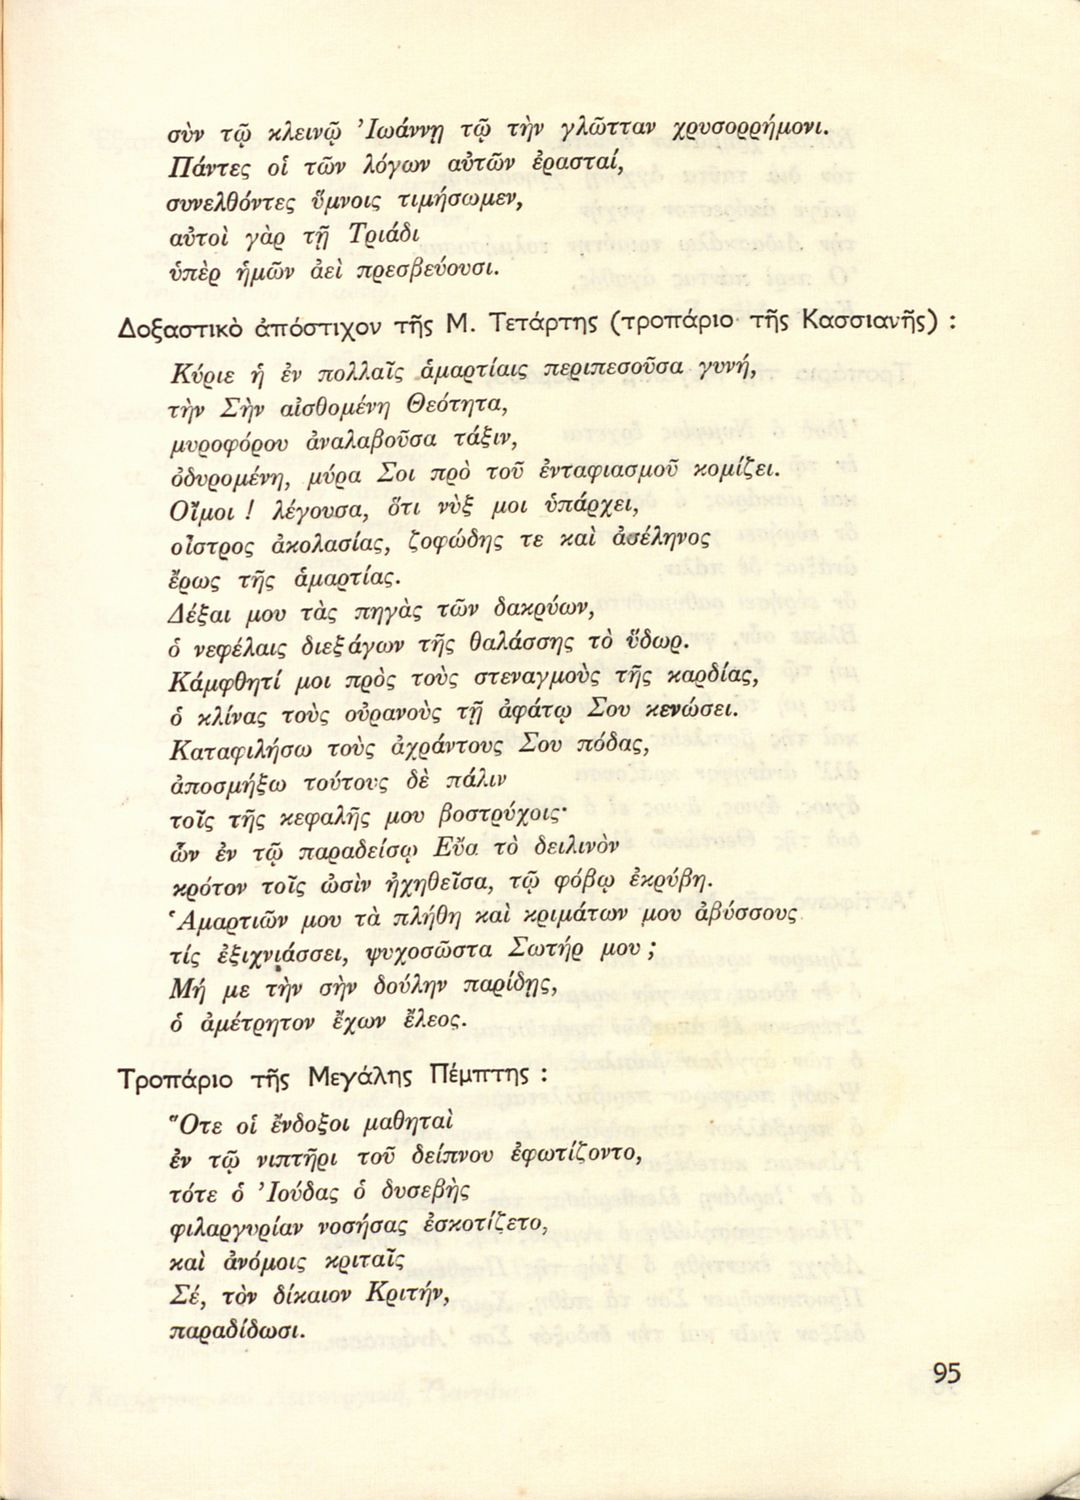 σὺν τῷ κλεινῷ Ἰωάννῃ τῷ τὴν γλῶτταν χρυσορρήμονι.
Πάντες οἱ τῶν λόγων αὐτῶν ἐρασταί,
συνελθόντες ὕμνοις τιμήσωμεν,
αὐτοὶ γὰρ τῇ Τριάδι
ὑπὲρ ἡμῶν ἀεὶ πρεσβεύουσι.
Δοξαστικὸ ἀπόστιχον τῆς Μ. Τετάρτης (τροπάριο τῆς Κασσιανῆς) :
Κύριε ἡ ἐν πολλαῖς ἁμαρτίαις περιπεσοῦσα γυνή,
τὴν Σὴν αἰσθομένη Θεότητα,
μυροφόρου ἀναλαβοῦσα τάξιν,
ὀδυρομένη, μύρα Σοι πρὸ τοῦ ἐνταφιασμοῦ κομίζει.
Οἴμοι ! λέγουσα, ὅτι νὺξ μοι ὑπάρχει,
οἶστρος ἀκολασίας, ζοφώδης τε καὶ ἀσέληνος
ἔρως τῆς ἁμαρτίας.
Δέξαι μου τὰς πηγὰς τῶν δακρύων,
ὁ νεφέλαις διεξάγων τῆς θαλάσσης τὸ ὕδωρ.
Κάμφθητί μοι πρὸς τοὺς στεναγμοὺς τῆς καρδίας,
ὁ κλίνας τοὺς οὐρανοὺς τῇ ἀφάτῳ Σου κενώσει.
Καταφιλήσω τοὺς ἀχράντους Σου πόδας,
ἀποσμήξω τούτους δὲ πάλιν
τοῖς τῆς κεφαλῆς μου βοστρύχοις·
ὧν ἐν τῷ παραδείσῳ Εὔα τὸ δειλινὸν
κρότον τοῖς ὠσὶν ἠχηθεῖσα, τῷ φόβῳ ἐκρύβη.
Ἁμαρτιῶν μου τὰ πλήθη καὶ κριμάτων μου ἀβύσσους
τίς ἐξιχνιάσσει, ψυχοσῶστα Σωτήρ μου ;
Μή με τὴν σὴν δούλην παρίδῃς,
ὁ ἀμέτρητον ἔχων ἔλεος.
Τροπάριο τῆς Μεγάλης Πέμπτης :
Ὅτε οἱ ἔνδοξοι μαθηταὶ
ἐν τῷ νιπτῆρι τοῦ δείπνου ἐφωτίζοντο,
τότε ὁ Ἰούδας ὁ δυσεβὴς
φιλαργυρίαν νοσήσας ἐσκοτίζετο,
καὶ ἀνόμοις κριταῖς
Σέ, τὸν δίκαιον Κριτήν,
παραδίδωσι.
95